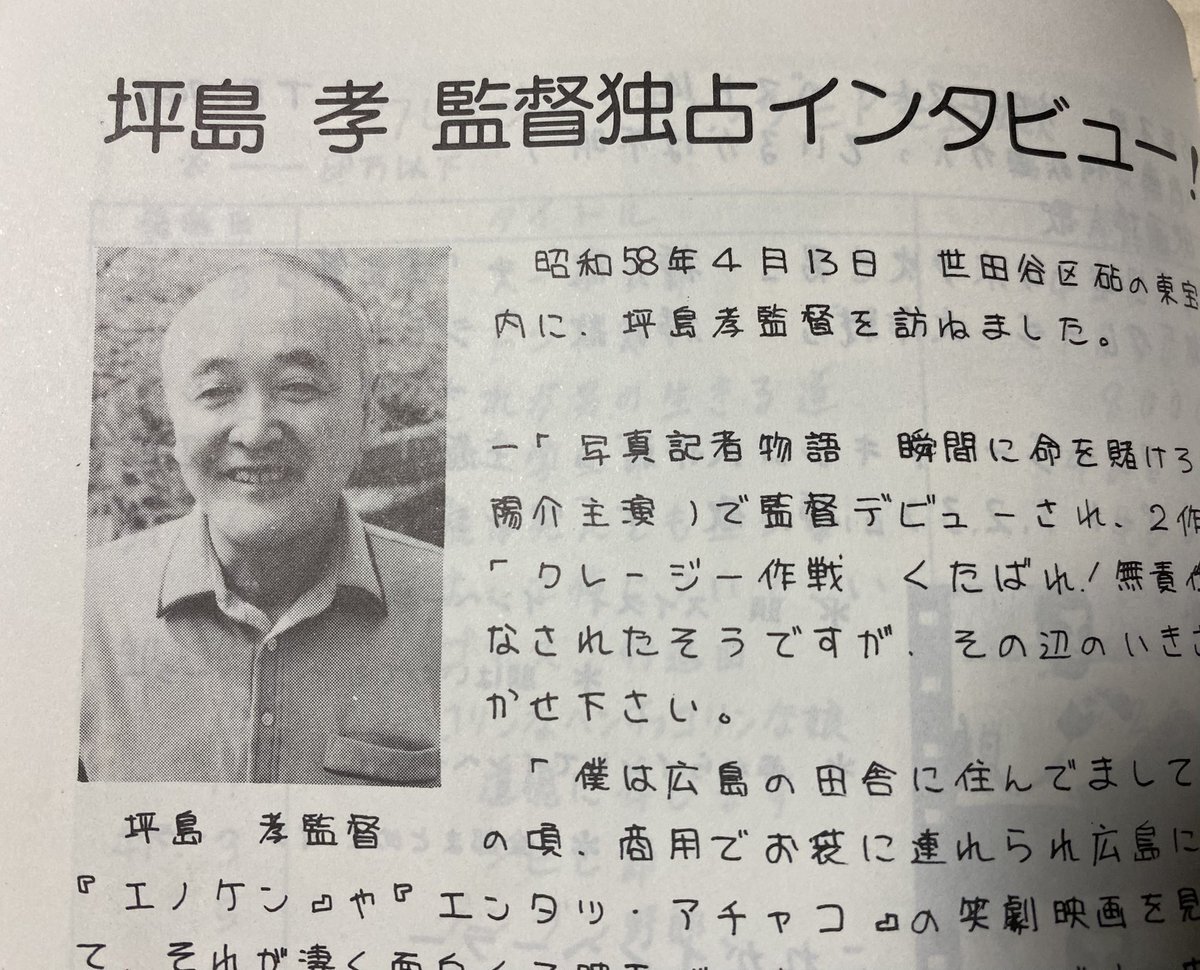 坪島 孝 監督独占インタビュー!
昭和58年4月13日 世田谷区砧の東宝
内に、坪島孝監督を訪ねました。
ー「写真記者物語 瞬間に命を賭けろ
陽介主演)で監督デビューされ、2作
「クレージー作戦 くたばれ!無責任
なされたそうですが、その辺のいきさ
かせ下さい。
「僕は広島の田舎に住んでまして
坪島 孝監督
の頃、商用でお袋に連れられ広島に
『エノケン』や『エンタツ・アチャコ』の笑劇映画を見
て、それが凄く面白くて映画